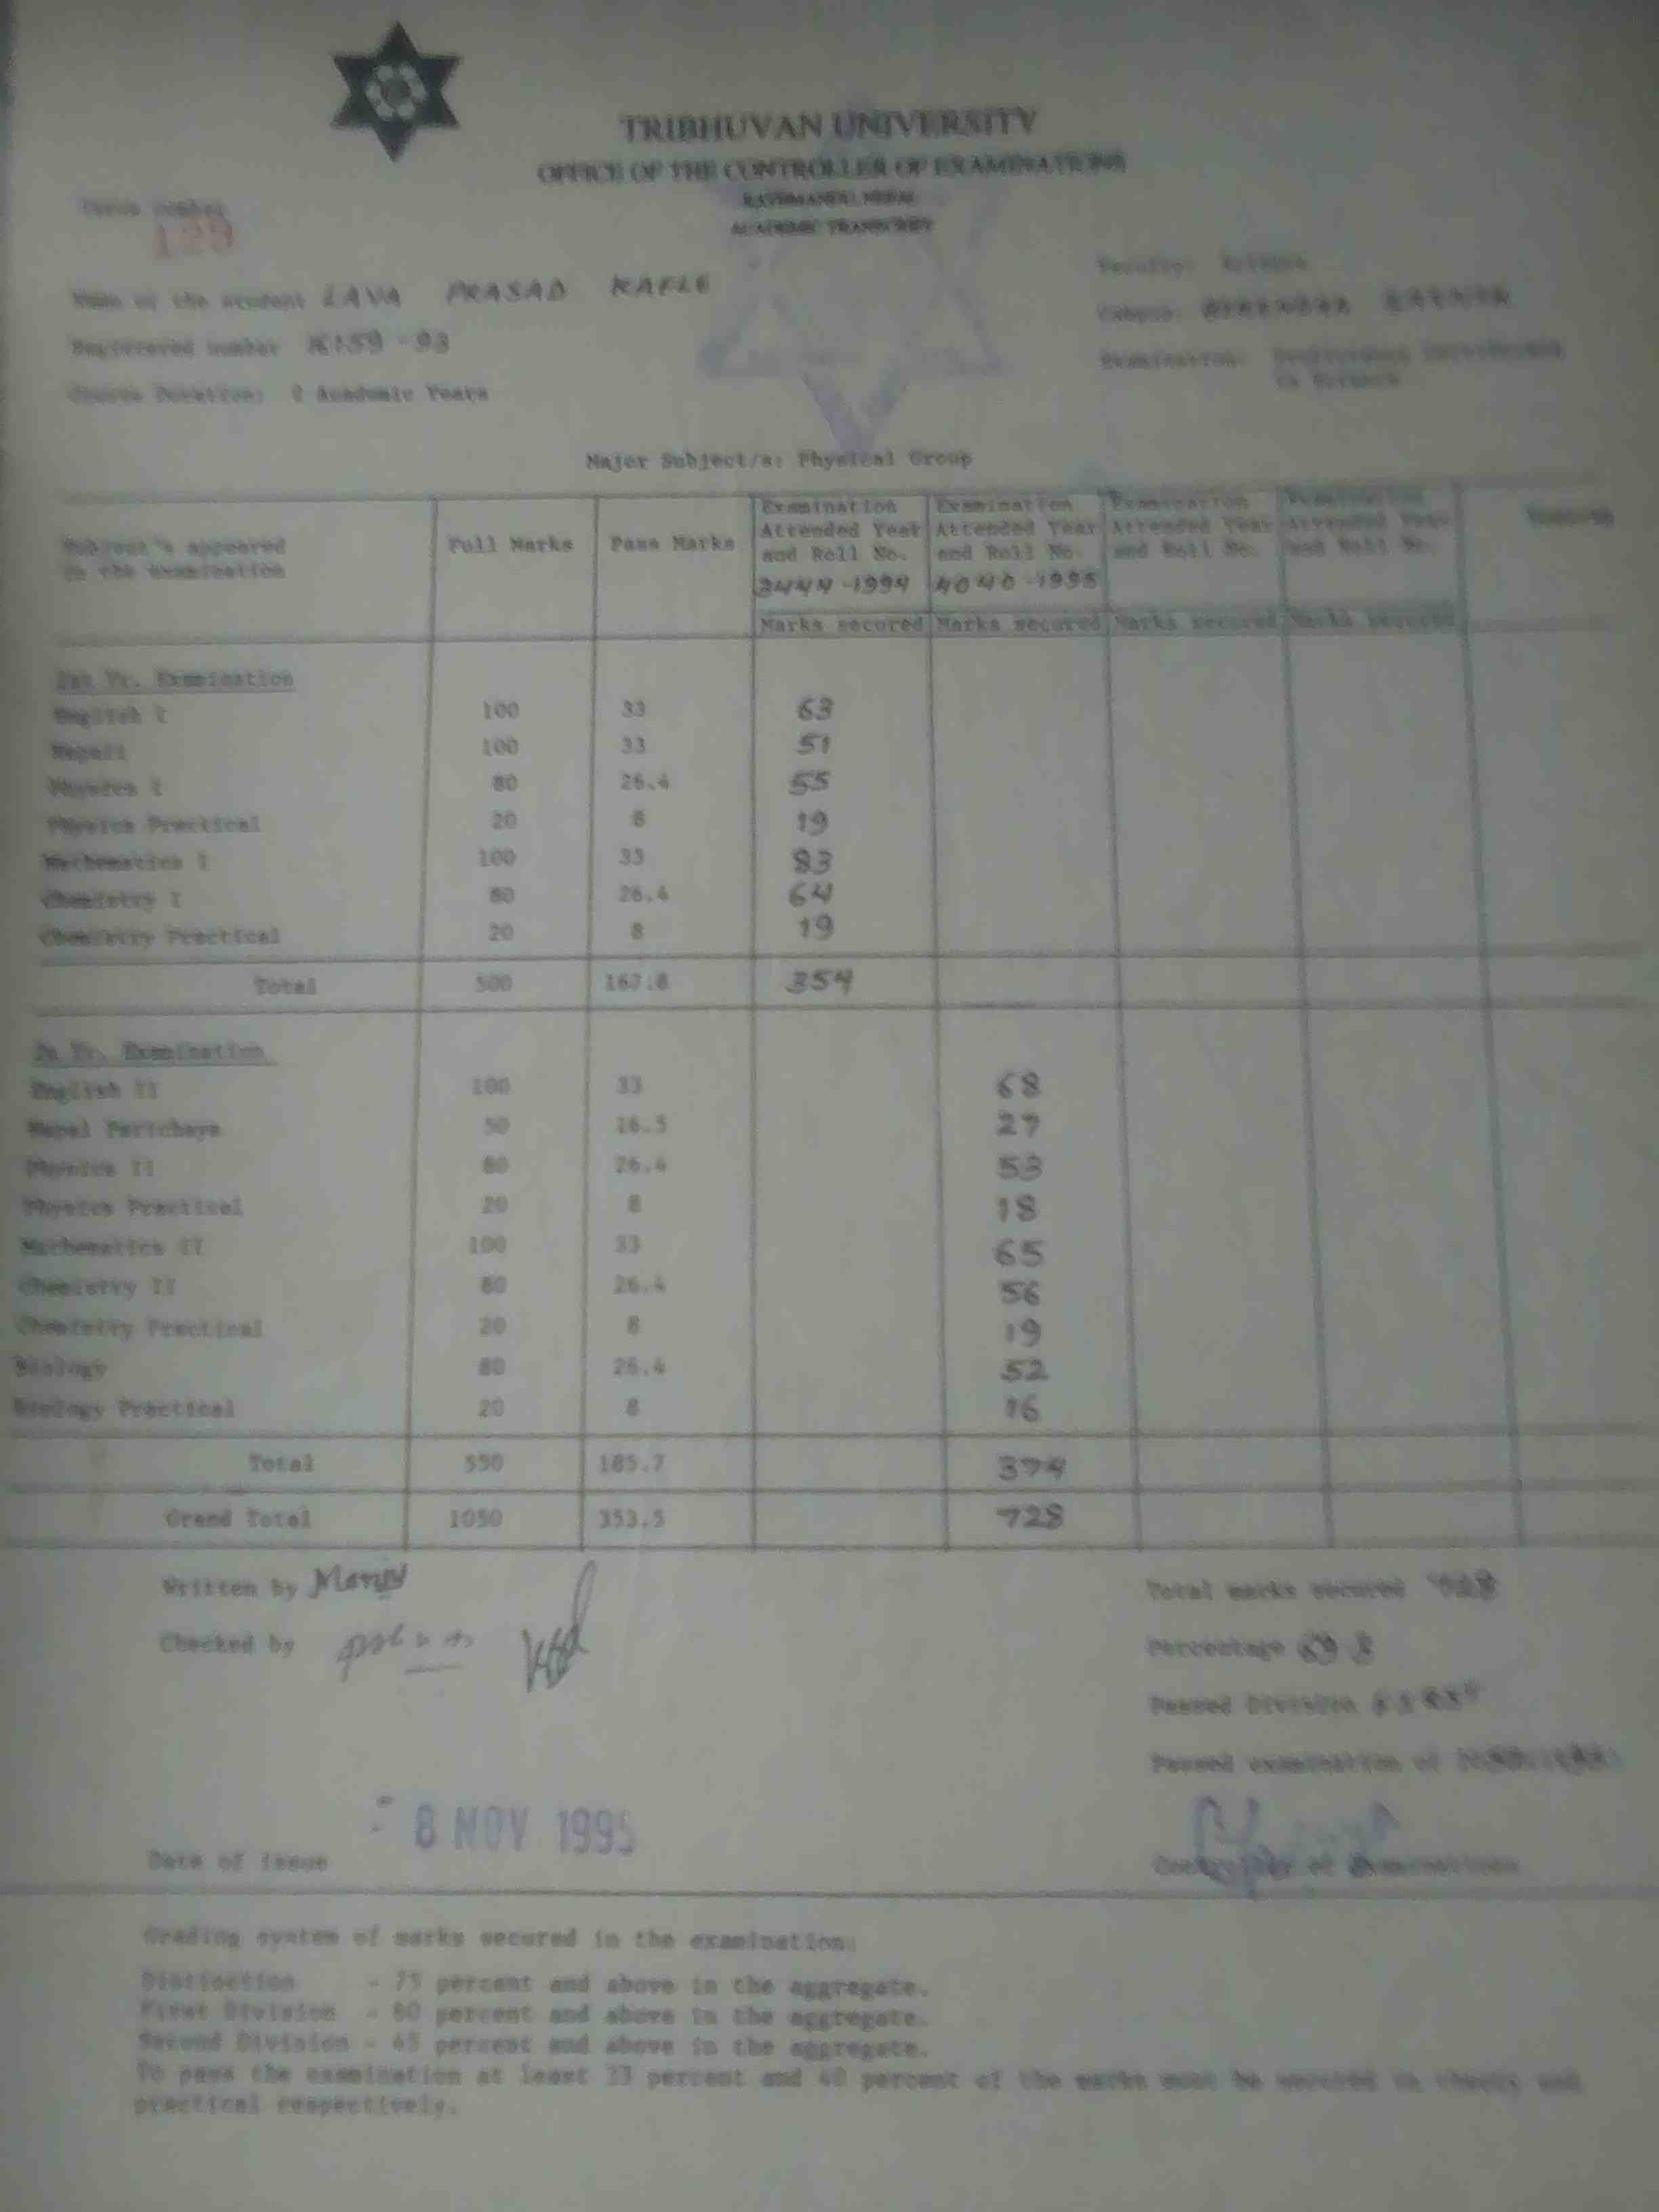 TRIBHUVAN UNIVERSITY
OFFICE OF THE CONTROLLER OF EXAMINATIONS
KATHMANDU, NEPAL
ACADEMIC TRANSCRIPT
number
129
Name of the student LAVA PRASAD KAFLE
Registered number K159-93
Course Duration: 2 Academic Years
Faculty: Science
Campus:
Examination: Proficiency Certificate
in Science
Major Subject/s: Physical Group
Subject's appeared in the examination Full Marks Pass Marks Examination Attended Year and Roll No. Examination Attended Year and Roll No. Examination Attended Year and Roll No. Examination Attended Year and Roll No.
3444-1994 4040-1995
Marks secured Marks secured Marks secured Marks secured
Ist Yr. Examination
English I 100 33 63
Nepali 100 33 51
Physics I 80 26.4 55
Physics Practical 20 8 19
Mathematics I 100 33 83
Chemistry I 80 26.4 64
Chemistry Practical 20 8 19
Total 500 167.8 354
Yr. Examination
English II 100 33 68
Nepal Parichaya 50 16.5 27
Physics II 80 26.4 53
Physics Practical 20 8 18
Mathematics II 100 33 65
Chemistry II 80 26.4 56
Chemistry Practical 20 8 19
Biology 80 26.4 52
Biology Practical 20 8 16
Total 550 185.7 374
Grand Total 1050 353.5 728
Written by
Total marks secured 728
Checked by
Percentage 69.3
Passed Division FIRST
Passed examination of
- 8 NOV 1995
Date of issue
Controller of Examinations
Grading system of marks secured in the examination:
Distinction - 75 percent and above in the aggregate.
First Division - 60 percent and above in the aggregate.
Second Division - 45 percent and above in the aggregate.
To pass the examination at least 33 percent and 40 percent of the marks must be secured in theory and
practical respectively.